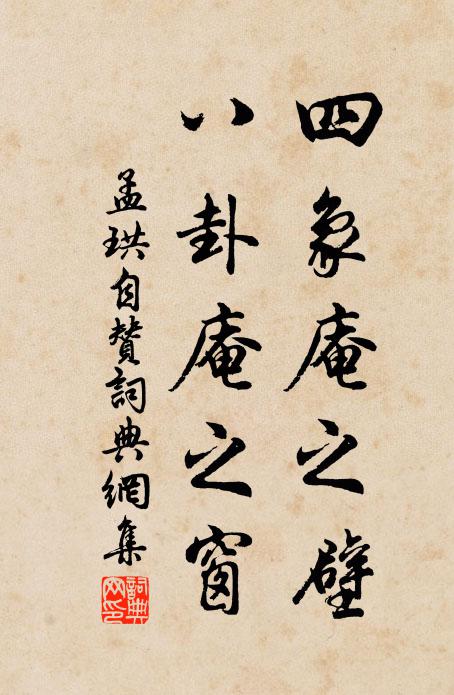 四象庵之壁
八卦庵之窗
孟珙自赞詞典網集
詞典网印